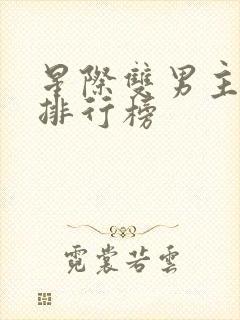 星際雙男主
排行榜
霓裳若雲